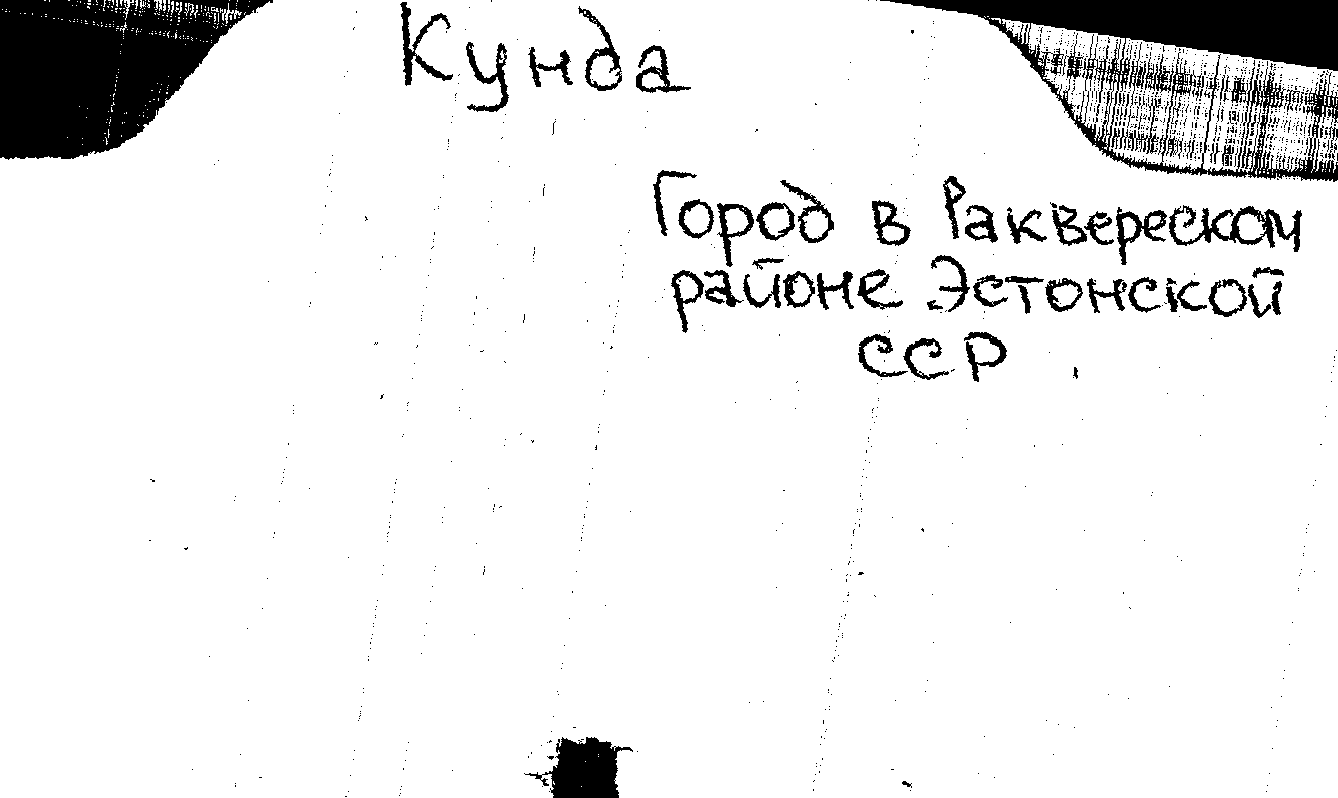 Кунда
Город в Раквереском
районе Эстонской
ССР